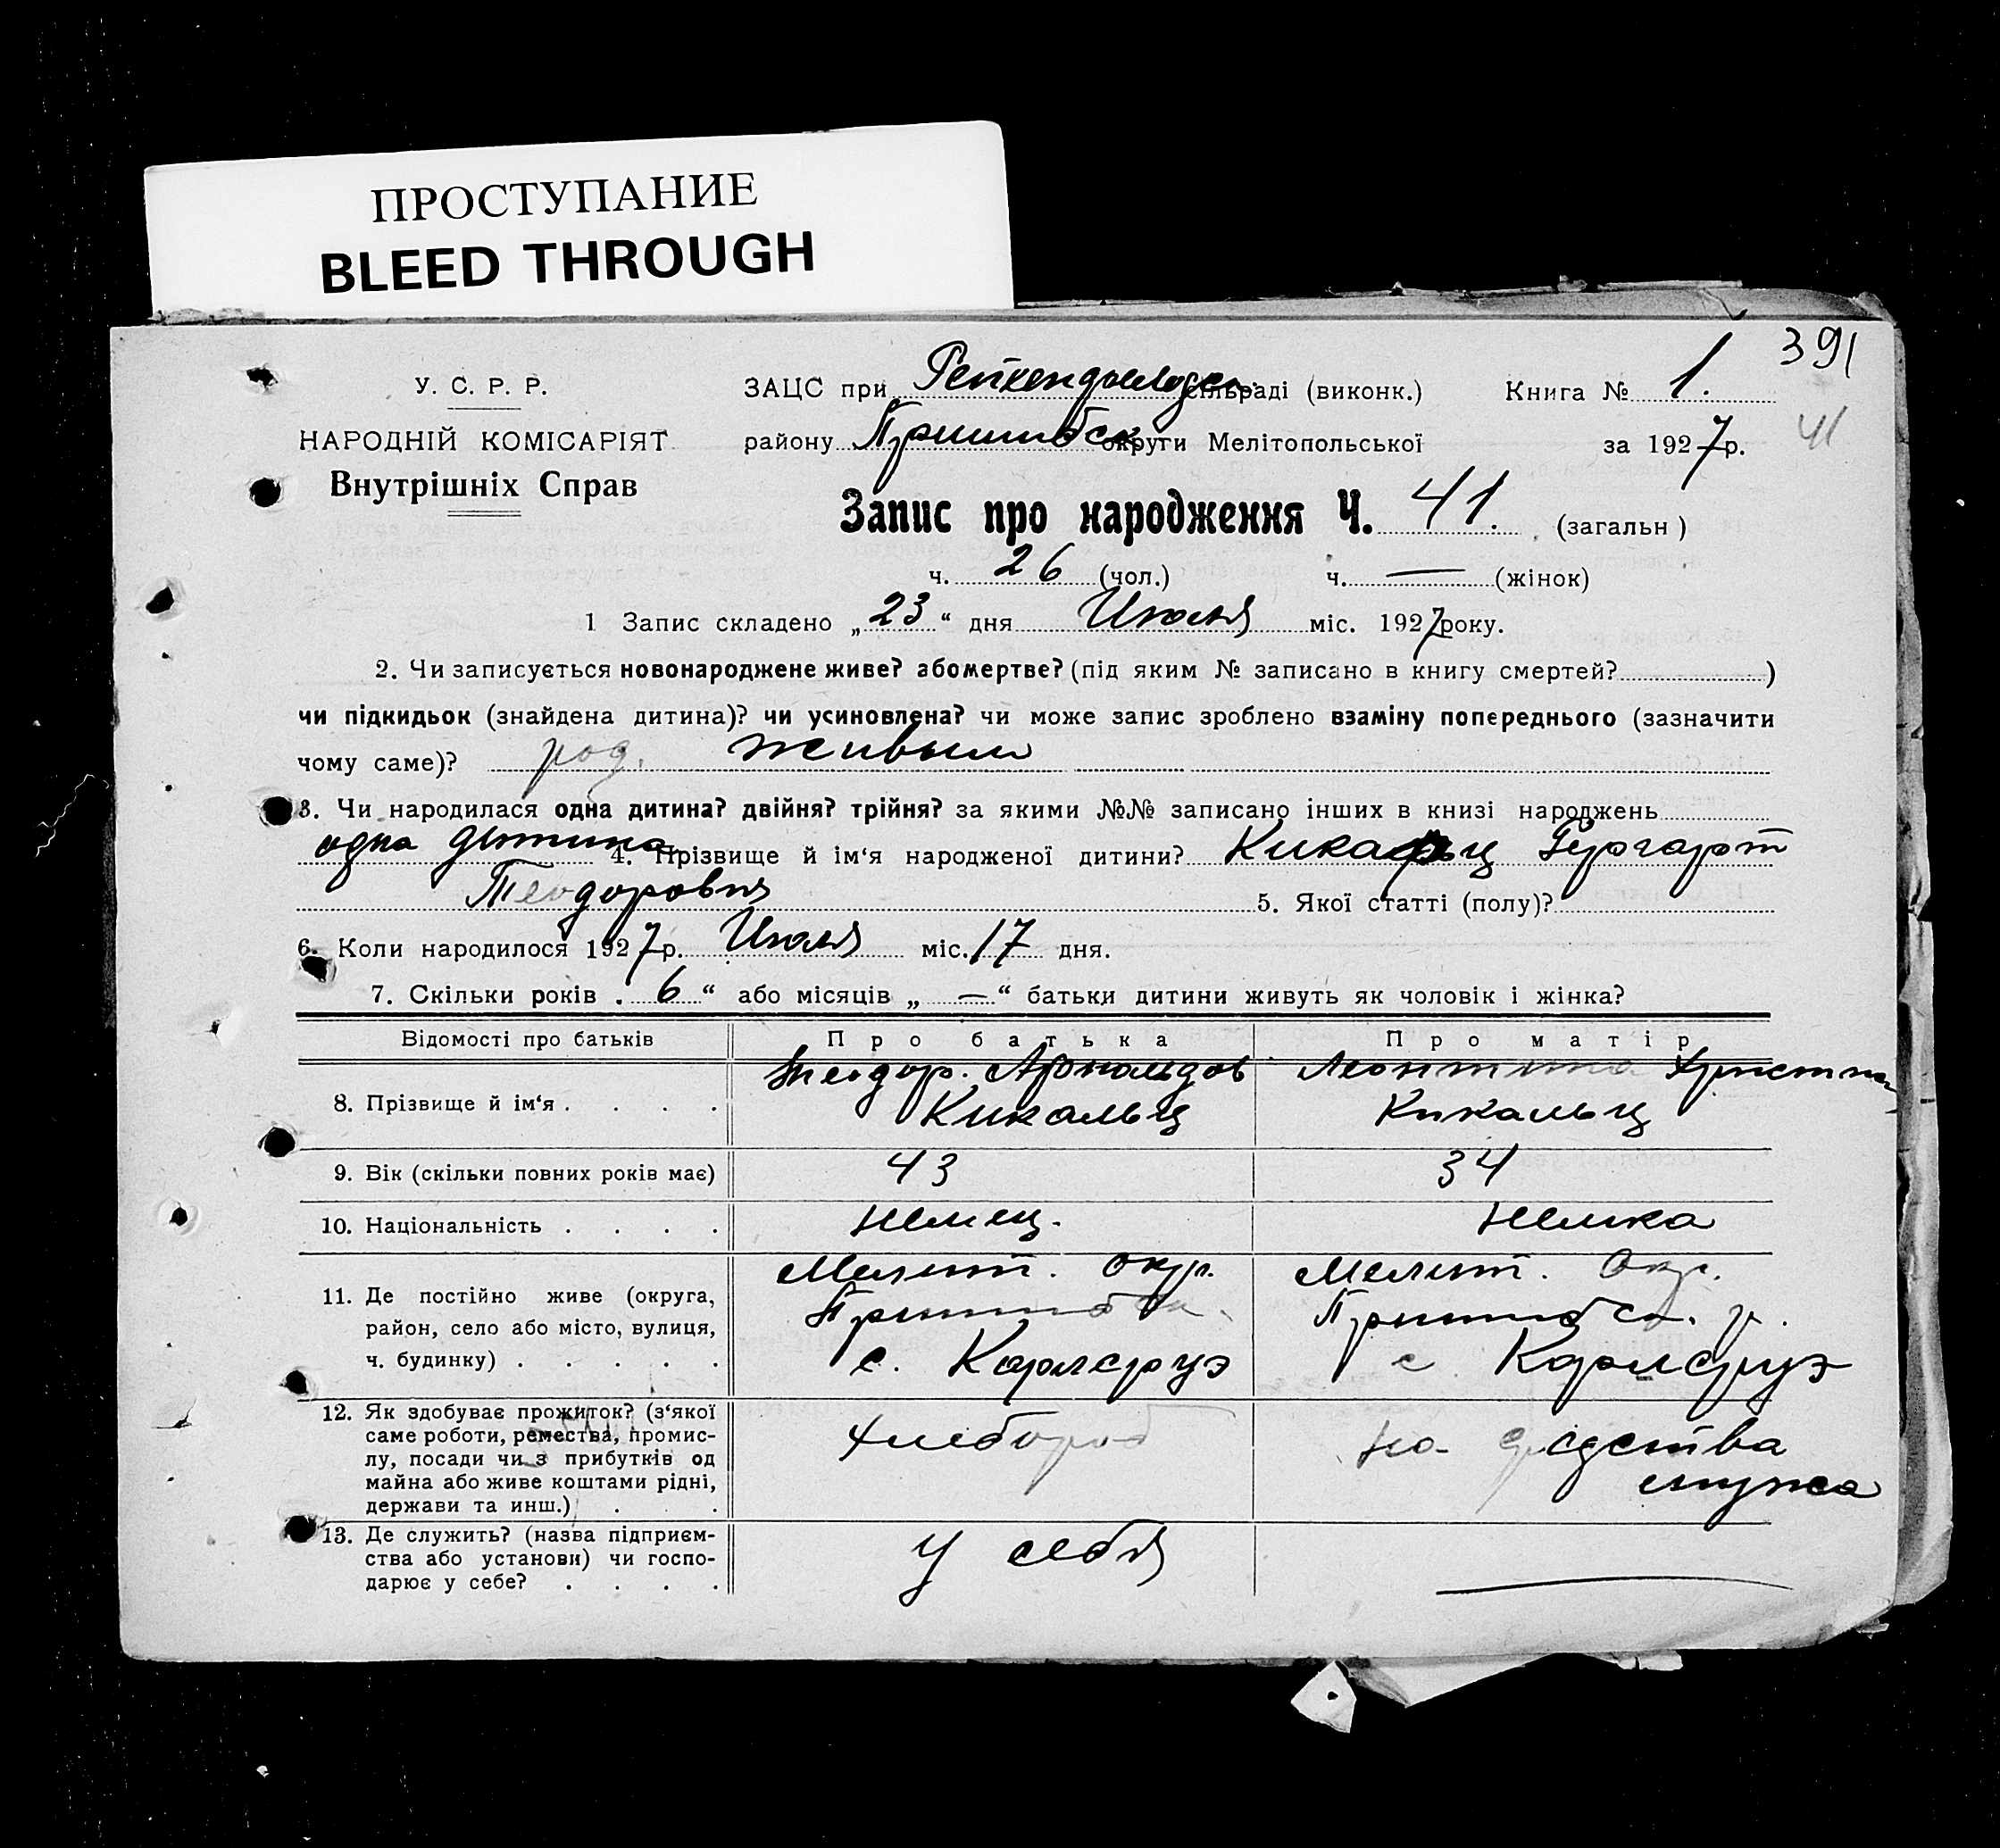 ПРОСТУПАНИЕ
BLEED THROUGH
391
У. С. Р. Р.
НАРОДНІЙ КОМІСАРІЯТ
Внутрішніх Справ
ЗАЦС при сільраді (виконк.) Книга № 1.
району Пришибск округи Мелітопольської за 1927 р. 41
Запис про народження Ч. 41. (загальн)
ч. 26 (чол.) ч. — (жінок)
1 Запис складено „23“ дня Июля міс. 1927 року.
2. Чи записується новонароджене живе? або мертве? (під яким № записано в книгу смертей? )
чи підкидьок (знайдена дитина)? чи усиновлена? чи може запис зроблено взаміну попереднього (зазначити
чому саме)? род. живым
3. Чи народилася одна дитина? двійня? трійня? за якими №№ записано інших в книзі народжень
одна дитина 4. Прізвище й ім'я народженої дитини? Кикальц Гергарт
Теодорович 5. Якої статті (полу)?
6. Коли народилося 1927 р. Июля міс. 17 дня.
7. Скільки років . 6 “ або місяців „ — “ батьки дитини живуть як чоловік і жінка?
Відомості про батьків Про батька Про матір
8. Прізвище й ім'я . . . . Теодор. Арнольдов Леонтина
Кикальц Кикальц
9. Вік (скільки повних років має) 43 34
10. Національність . . . . Немец. Немка
11. Де постійно живе (округа, район, село або місто, вулиця, ч. будинку) . . . . . Мелит. окр. Мелит. Окр.
Пришибск. Пришибск. р.
с. Карлсруэ с Карлсруэ
12. Як здобуває прожиток? (з'якої саме роботи, ремества, промислу, посади чи з прибутків од майна або живе коштами рідні, держави та инш.) . . Хлебороб на средства
мужа
13. Де служить? (назва підприємства або установи) чи господарює у себе? . . . . У себя